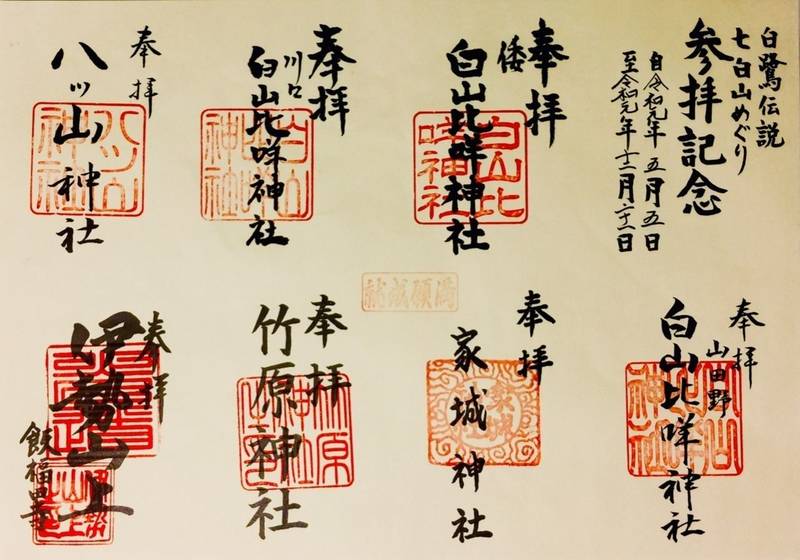 白鷺伝説
七白山めぐり
参拝記念
自令和元年五月五日
至令和元年十二月二十一日
奉拝
倭
白山比咩神社
奉拝
川口
白山比咩神社
奉拝
八ツ山神社
満願成就
奉拝
山田野
白山比咩神社
奉拝
家城神社
奉拝
竹原神社
奉拝
伊勢山上
飯福田寺
白山比
咩神社